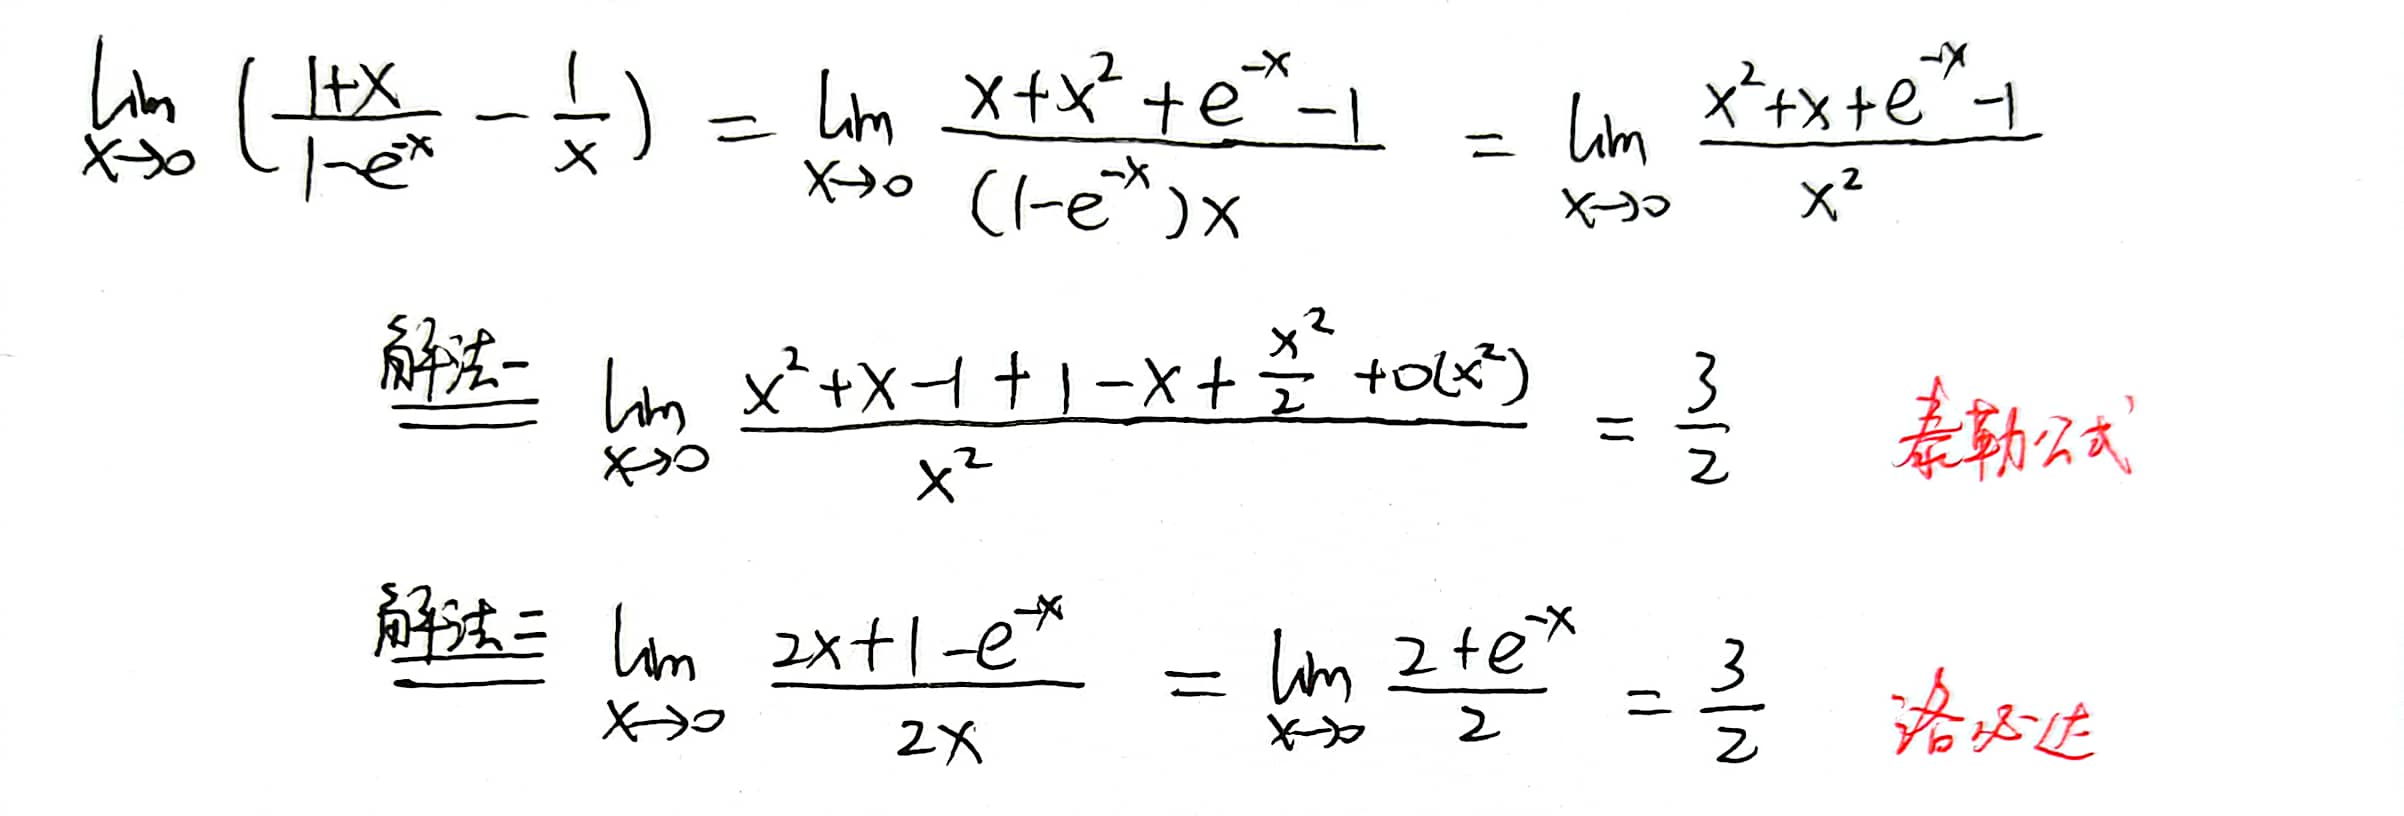 lim_{x→0} ( (1+x)/(1-e^{-x}) - 1/x ) = lim_{x→0} (x+x²+e^{-x}-1)/((1-e^{-x})x) = lim_{x→0} (x²+x+e^{-x}-1)/x²
解法一 lim_{x→0} (x²+x-1+1-x+x²/2+o(x²))/x² = 3/2 泰勒公式
解法二 lim_{x→0} (2x+1-e^{-x})/(2x) = lim_{x→0} (2+e^{-x})/2 = 3/2 洛必达